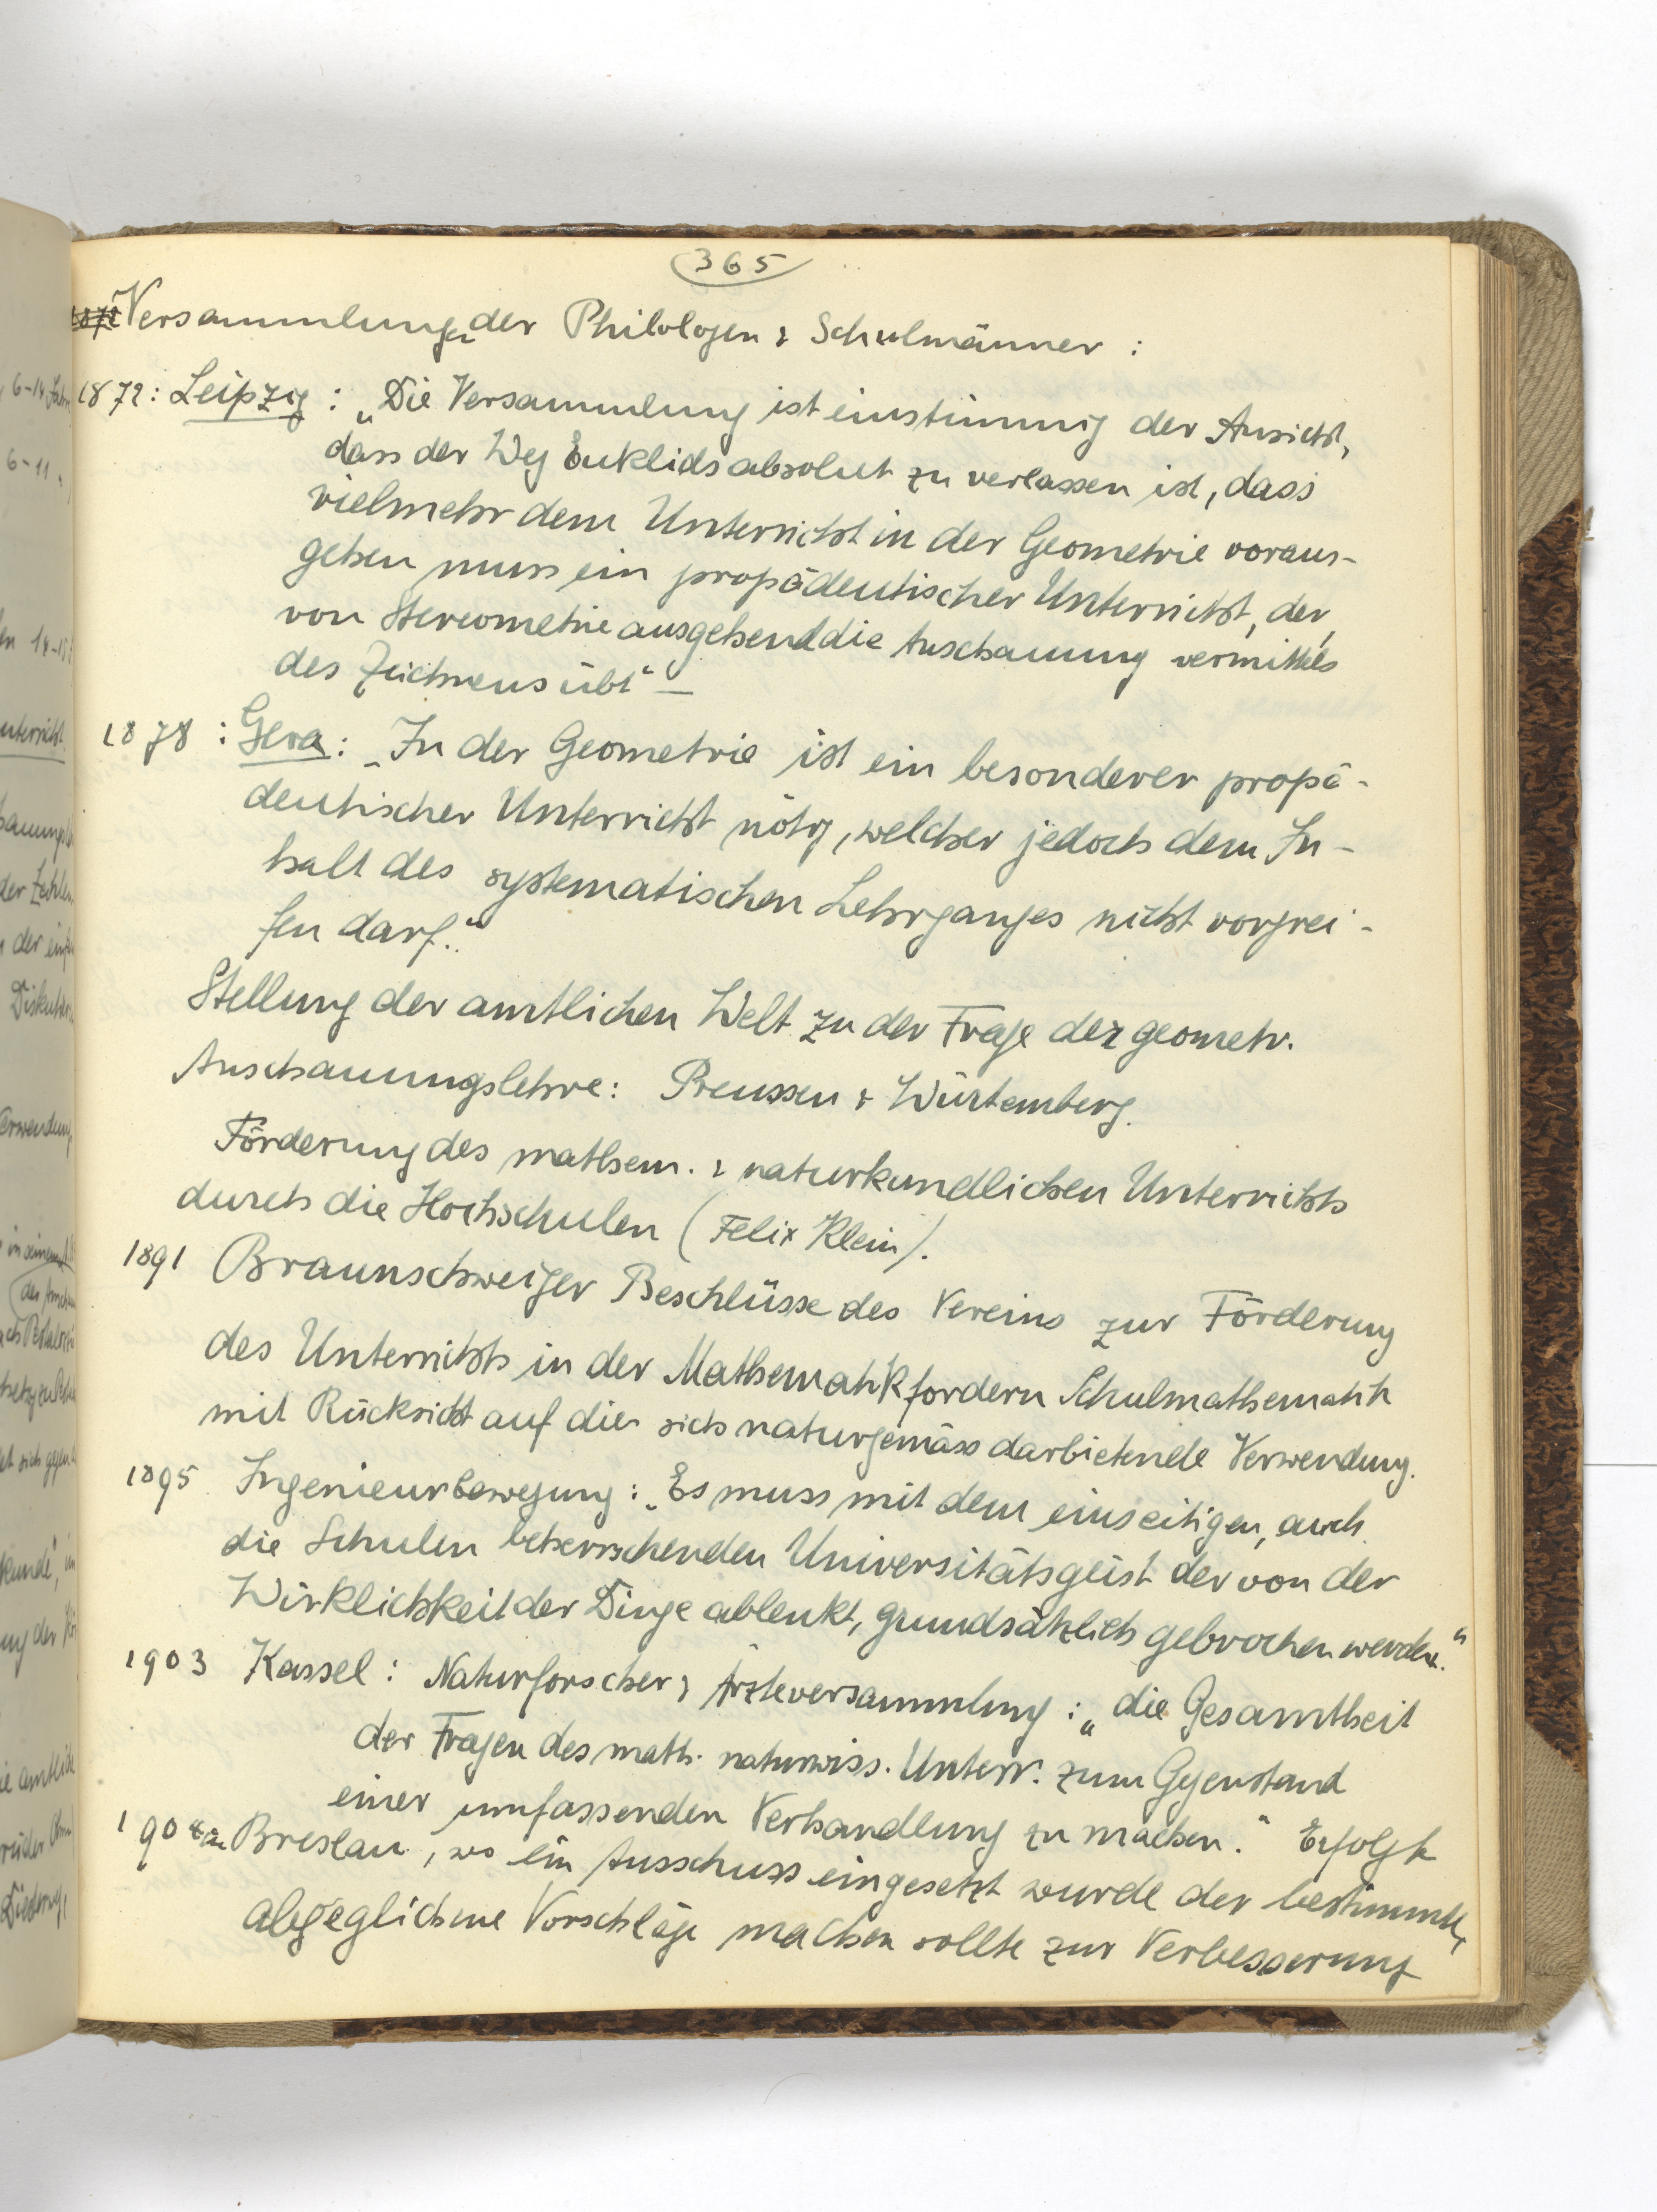 365
Versammlungen der Philologen & Schulmänner :
1872 : Leipzig : „Die Versammlung ist einstimmig der Ansicht,
dass der Weg Euklids absolut zu verlassen ist, dass
vielmehr dem Unterricht in der Geometrie voraus-
gehen muss ein propädeutischer Unterricht, der,
von Stereometrie ausgehend die Anschauung vermittels
des Zeichnens übt“ —
1878 : Gera : „In der Geometrie ist ein besonderer propä-
deutischer Unterricht nötig, welcher jedoch dem In-
halt des systematischen Lehrganges nicht vorgrei-
fen darf.“
Stellung der amtlichen Welt zu der Frage der geometr.
Anschauungslehre : Preussen & Würtemberg.
Förderung des mathem. & naturkundlichen Unterrichts
durch die Hochschulen (Felix Klein).
1891 Braunschweiger Beschlüsse des Vereins zur Förderung
des Unterrichts in der Mathematik fordern Schulmathematik
mit Rücksicht auf die sich naturgemäss darbietende Verwendung.
1895 Ingenieurbewegung : „Es muss mit dem einseitigen, auch
die Schulen beherrschenden Universitätsgeist der von der
Wirklichkeit der Dinge ablenkt, grundsätzlich gebrochen werden.“
1903 Kassel : Naturforscher & Ärzteversammlung : „die Gesamtheit
der Fragen des math. naturwiss. Unterr. zum Gegenstand
einer umfassenden Verhandlung zu machen.“ Erfolgte
1904 in Breslau, wo ein Ausschuss eingesetzt wurde der bestimmte,
abgeglichene Vorschläge machen sollte zur Verbesserung